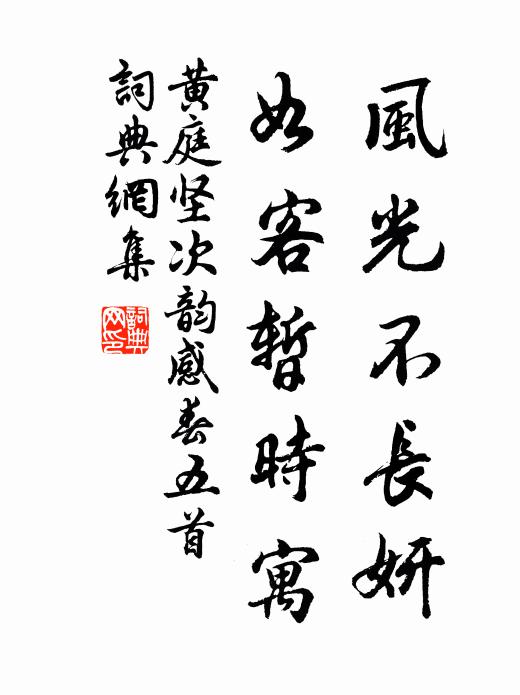 風光不長妍
如客暫時寓
黄庭坚次韵感春五首
詞典網集
詞典
网印